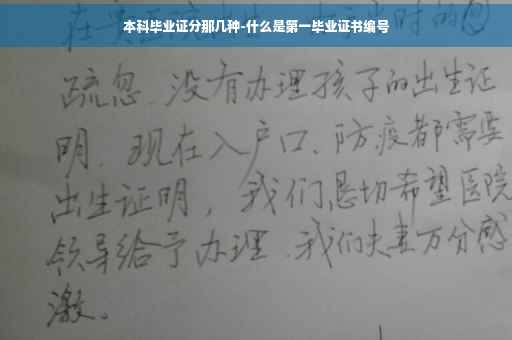 本科毕业证分那几种-什么是第一毕业证书编号
疏忽、没有办理孩子的出生证
明、现在入户口、防疫都需要
出生证明，我们恳切希望医院
领导给予办理、我们夫妻万分感
激。